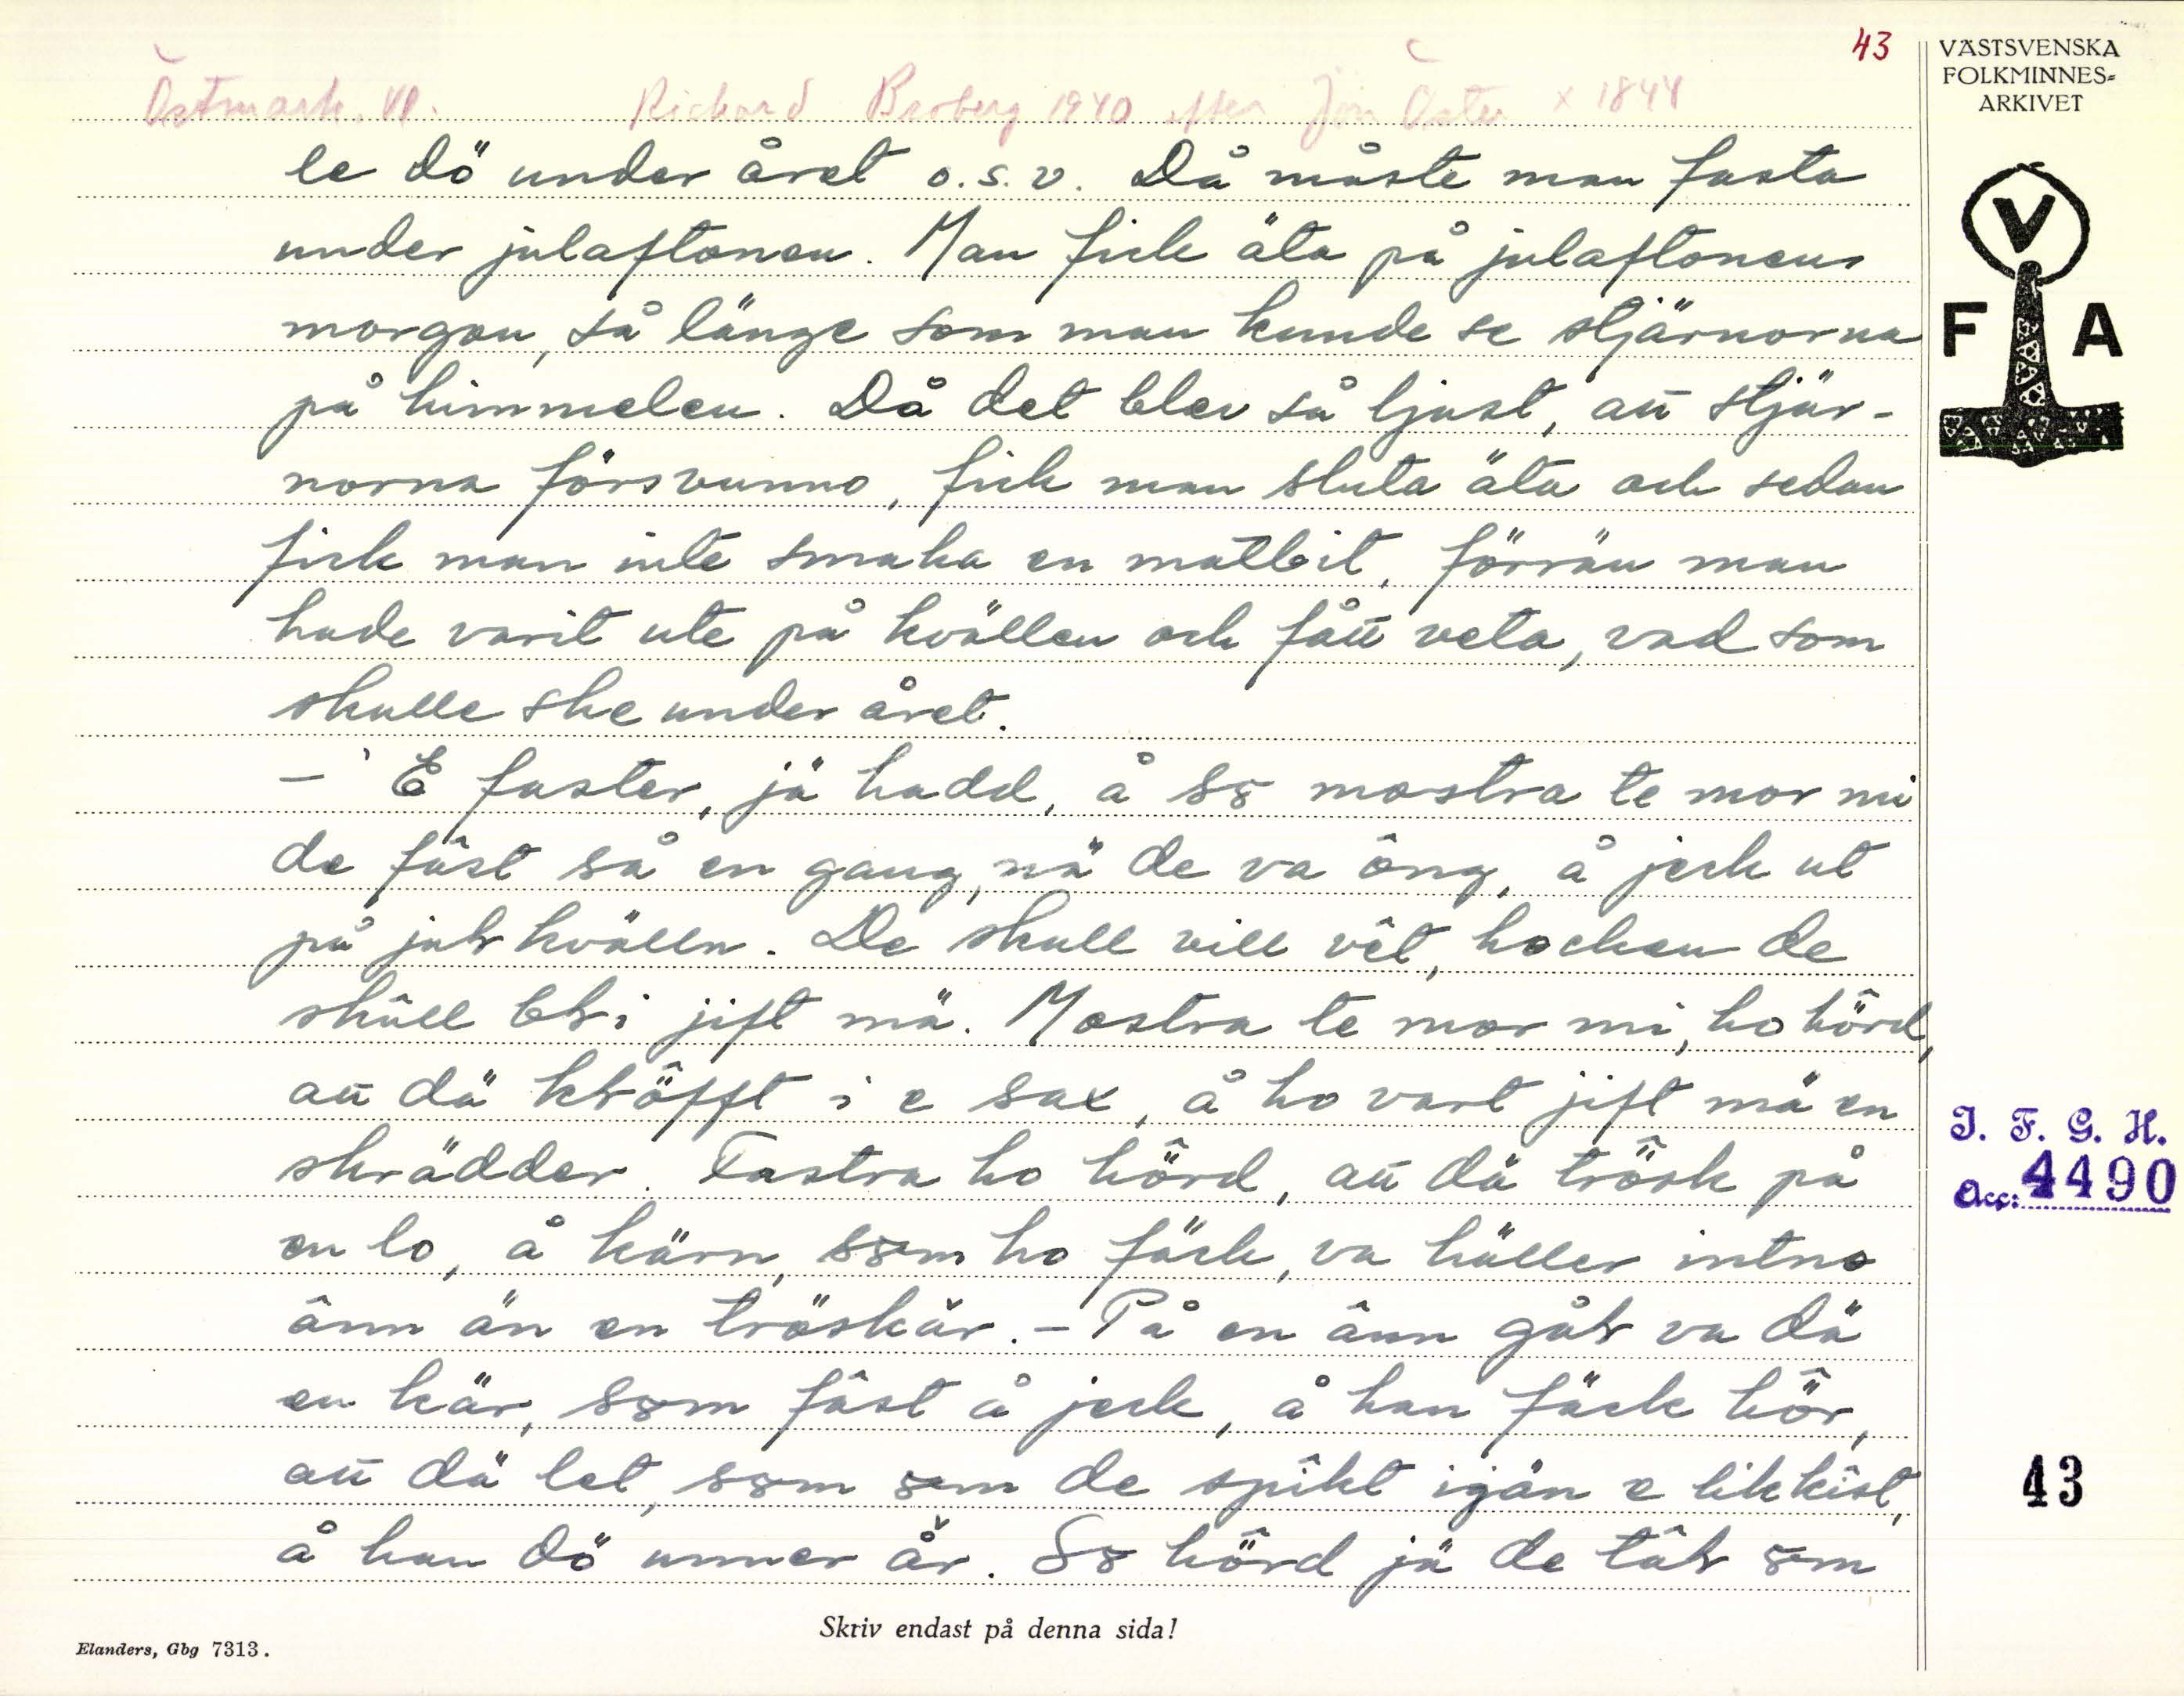 43
VÄSTSVENSKA
FOLKMINNES-
ARKIVET
Östmark. Vl. Richard Broberg 1940 efter Jon Öster x 1844
le dö under året o.s.v. Då måste man fasta
under julaftonen. Man fick äta på julaftonens
morgon, så länge som man kunde se stjärnorna
på himmelen. Då det blev så ljust, att stjär-
norna försvunno, fick man sluta äta och sedan
fick man inte smaka en matbit, förrän man
hade varit ute på kvällen och fått veta, vad som
skulle ske under året.
– E faster, jä hadd, å s8 mostra te mor mi
de fâst så en gang, nä de va ông, å jeck ut
på julkvälln. De skull vill vêt, hocken de
skûll bli jift mä. Mostra te mor mi, ho hörd,
att dä klöfft i e sax, å ho vart jift mä en
skrädder. Fastra ho hörd, att dä trösk på
en lo, å kärn, s8m ho fäck, va häller intno
ânn än en tröskär. – På en ânn gål va dä
en kär, s8m fâst å jeck, å han fäck hör,
att dä let, s8m 8m de spikt igän e likkist,
å han dö unner år. S8 hörd jä de tâl 8m
V
F A
I. F. G. H.
Acc: 4490
43
Skriv endast på denna sida!
Elanders, Gbg 7313.